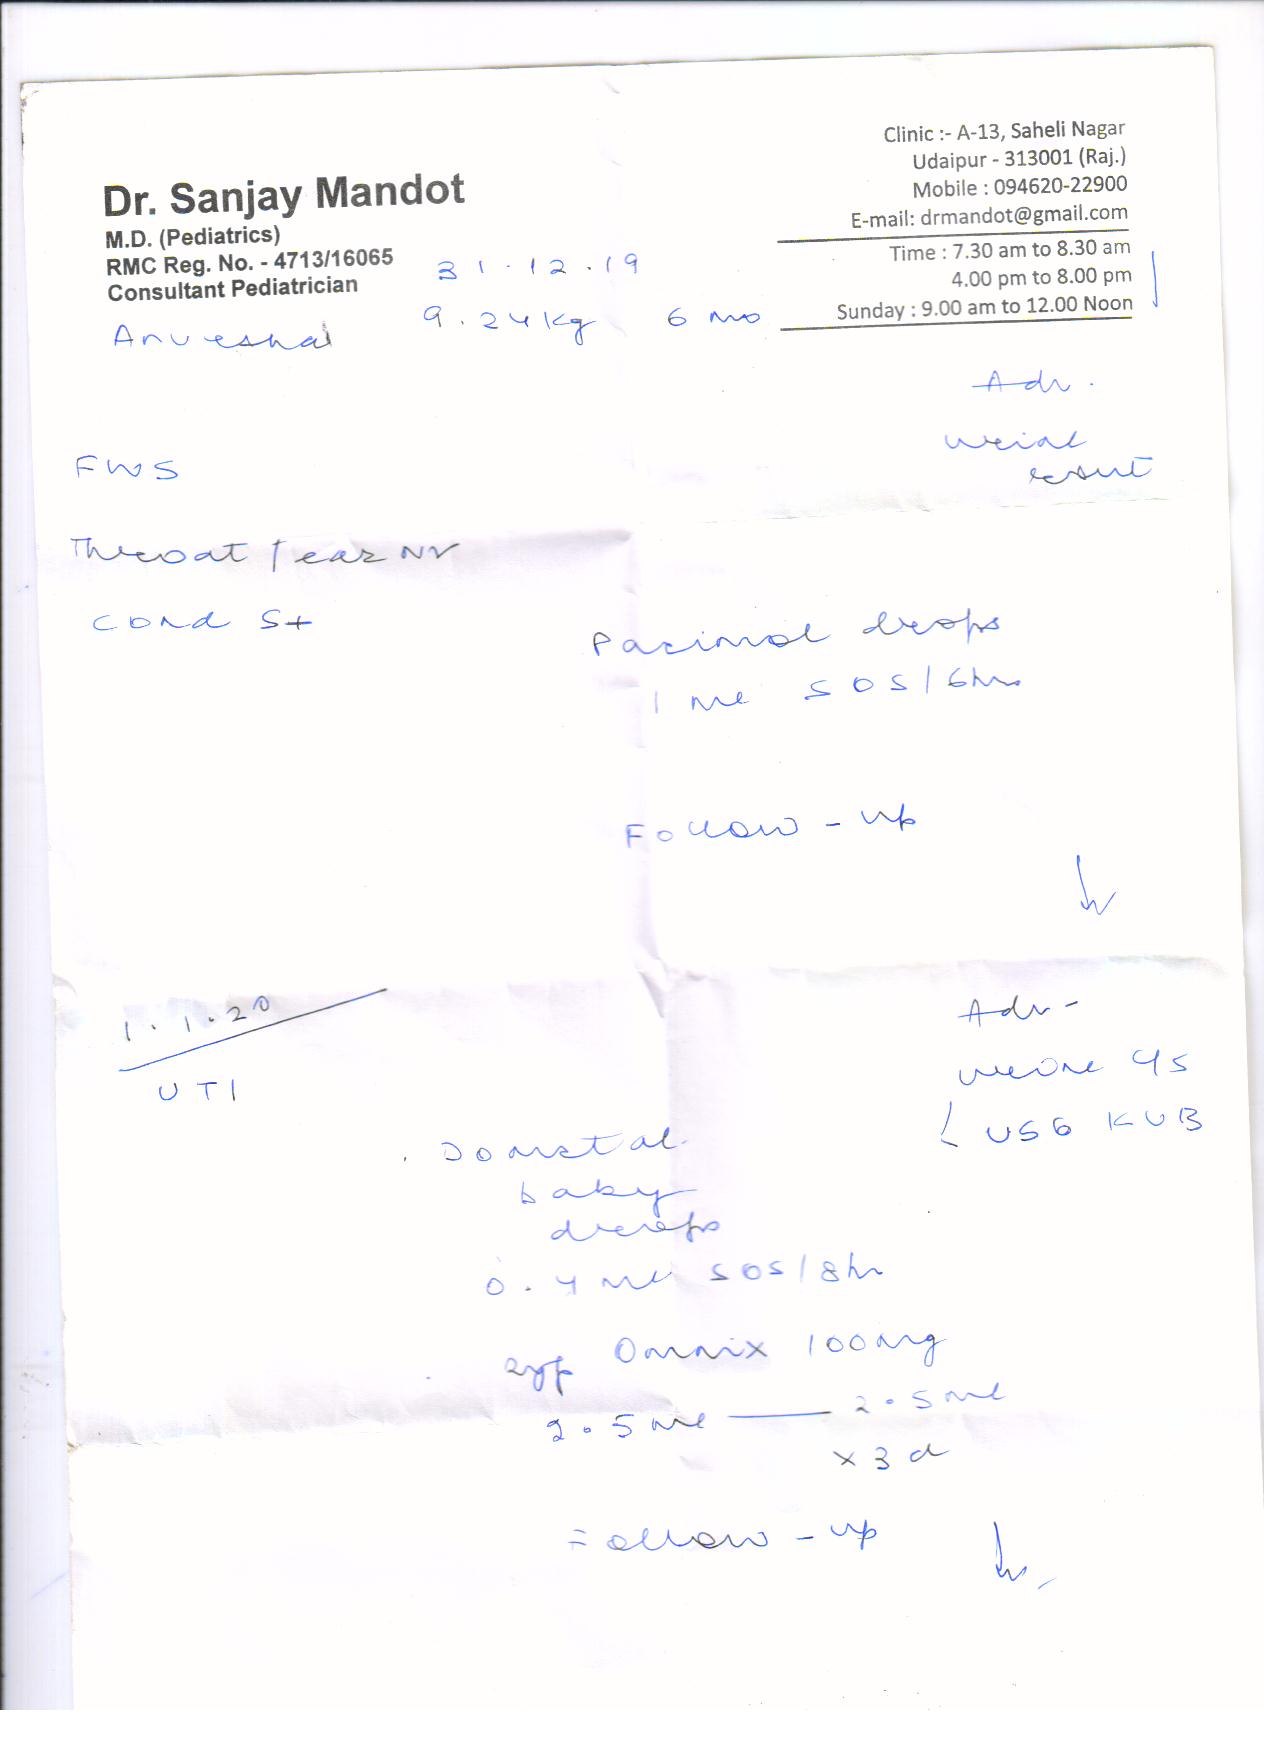 Dr. Sanjay Mandot
M.D. (Pediatrics)
RMC Reg. No. - 4713/16065
Consultant Pediatrician
Clinic :- A-13, Saheli Nagar
Udaipur - 313001 (Raj.)
Mobile : 094620-22900
E-mail: drmandot@gmail.com
Time : 7.30 am to 8.30 am
4.00 pm to 8.00 pm
Sunday : 9.00 am to 12.00 Noon
31.12.19
9.24 kg 6 mo
Adv.
FWS
Throat / ear
Cond S+
drops
1 ml SOS/6hr
Follow-up
1.1.20
UTI
Adv-
urine
USG KUB
Domstal
baby
drops
0.4 ml SOS/8hr
syp Omnix 100mg
2.5 ml — 2.5 ml
x 3 d
Follow-up